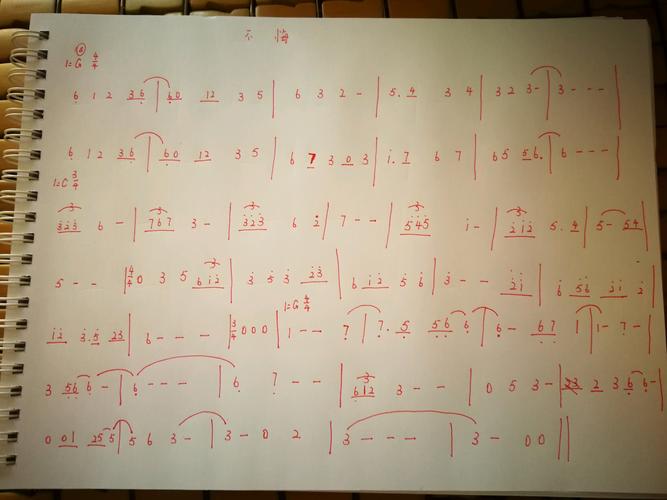 不悔
⑥ 4/4
1=G
6 1 2 36 | 60 12 3 5 | 6 3 2 - | 5. 4 3 4 | 3 2 3 - | 3 - - - |
6 1 2 36 | 60 12 3 5 | 6 7 3 0 3 | i. 7 6 7 | 65 56. | 6 - - - |
1=C 3/4
323 6 - | 767 3 - | 323 6 2 | 7 - - | 545 i - | 212 5. 4 | 5 - 54 |
5 - - | 4/4 0 3 5 612 | 3 5 3 23 | 6 12 5 6 | 3 - - 21 | 6 56 21 2 |
1=G 4/4
12 3.5 23 | 6 - - - | 3/4 0 0 0 | 1 - - 7 | 7. 5 56 6 | 6 - 67 1 | 1 - 7 - |
3 56 6 - | 6 - - - | 6 7 - - | 612 3 - - | 0 5 3 - | 2 3 6 6 - |
0 01 25 5 | 5 6 3 - | 3 - 0 2 | 3 - - - | 3 - 0 0 ||